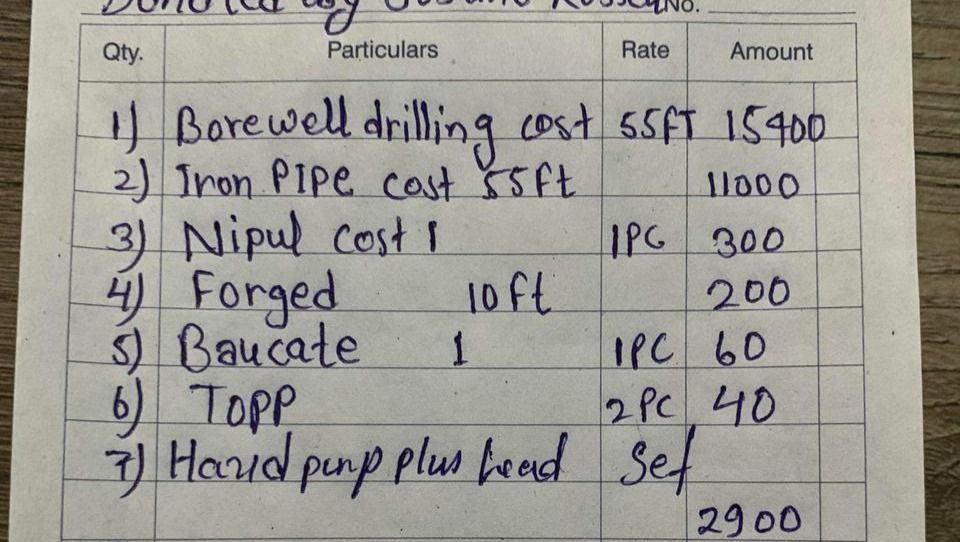 No.
Qty. Particulars Rate Amount
1) Borewell drilling cost 55FT 15400
2) Iron PIPe cost 55ft 11000
3) Nipul cost 1 1PC 300
4) Forged 10ft 200
5) Baucate 1 1PC 60
6) TOPP 2PC 40
7) Hand pump plus head Set
2900